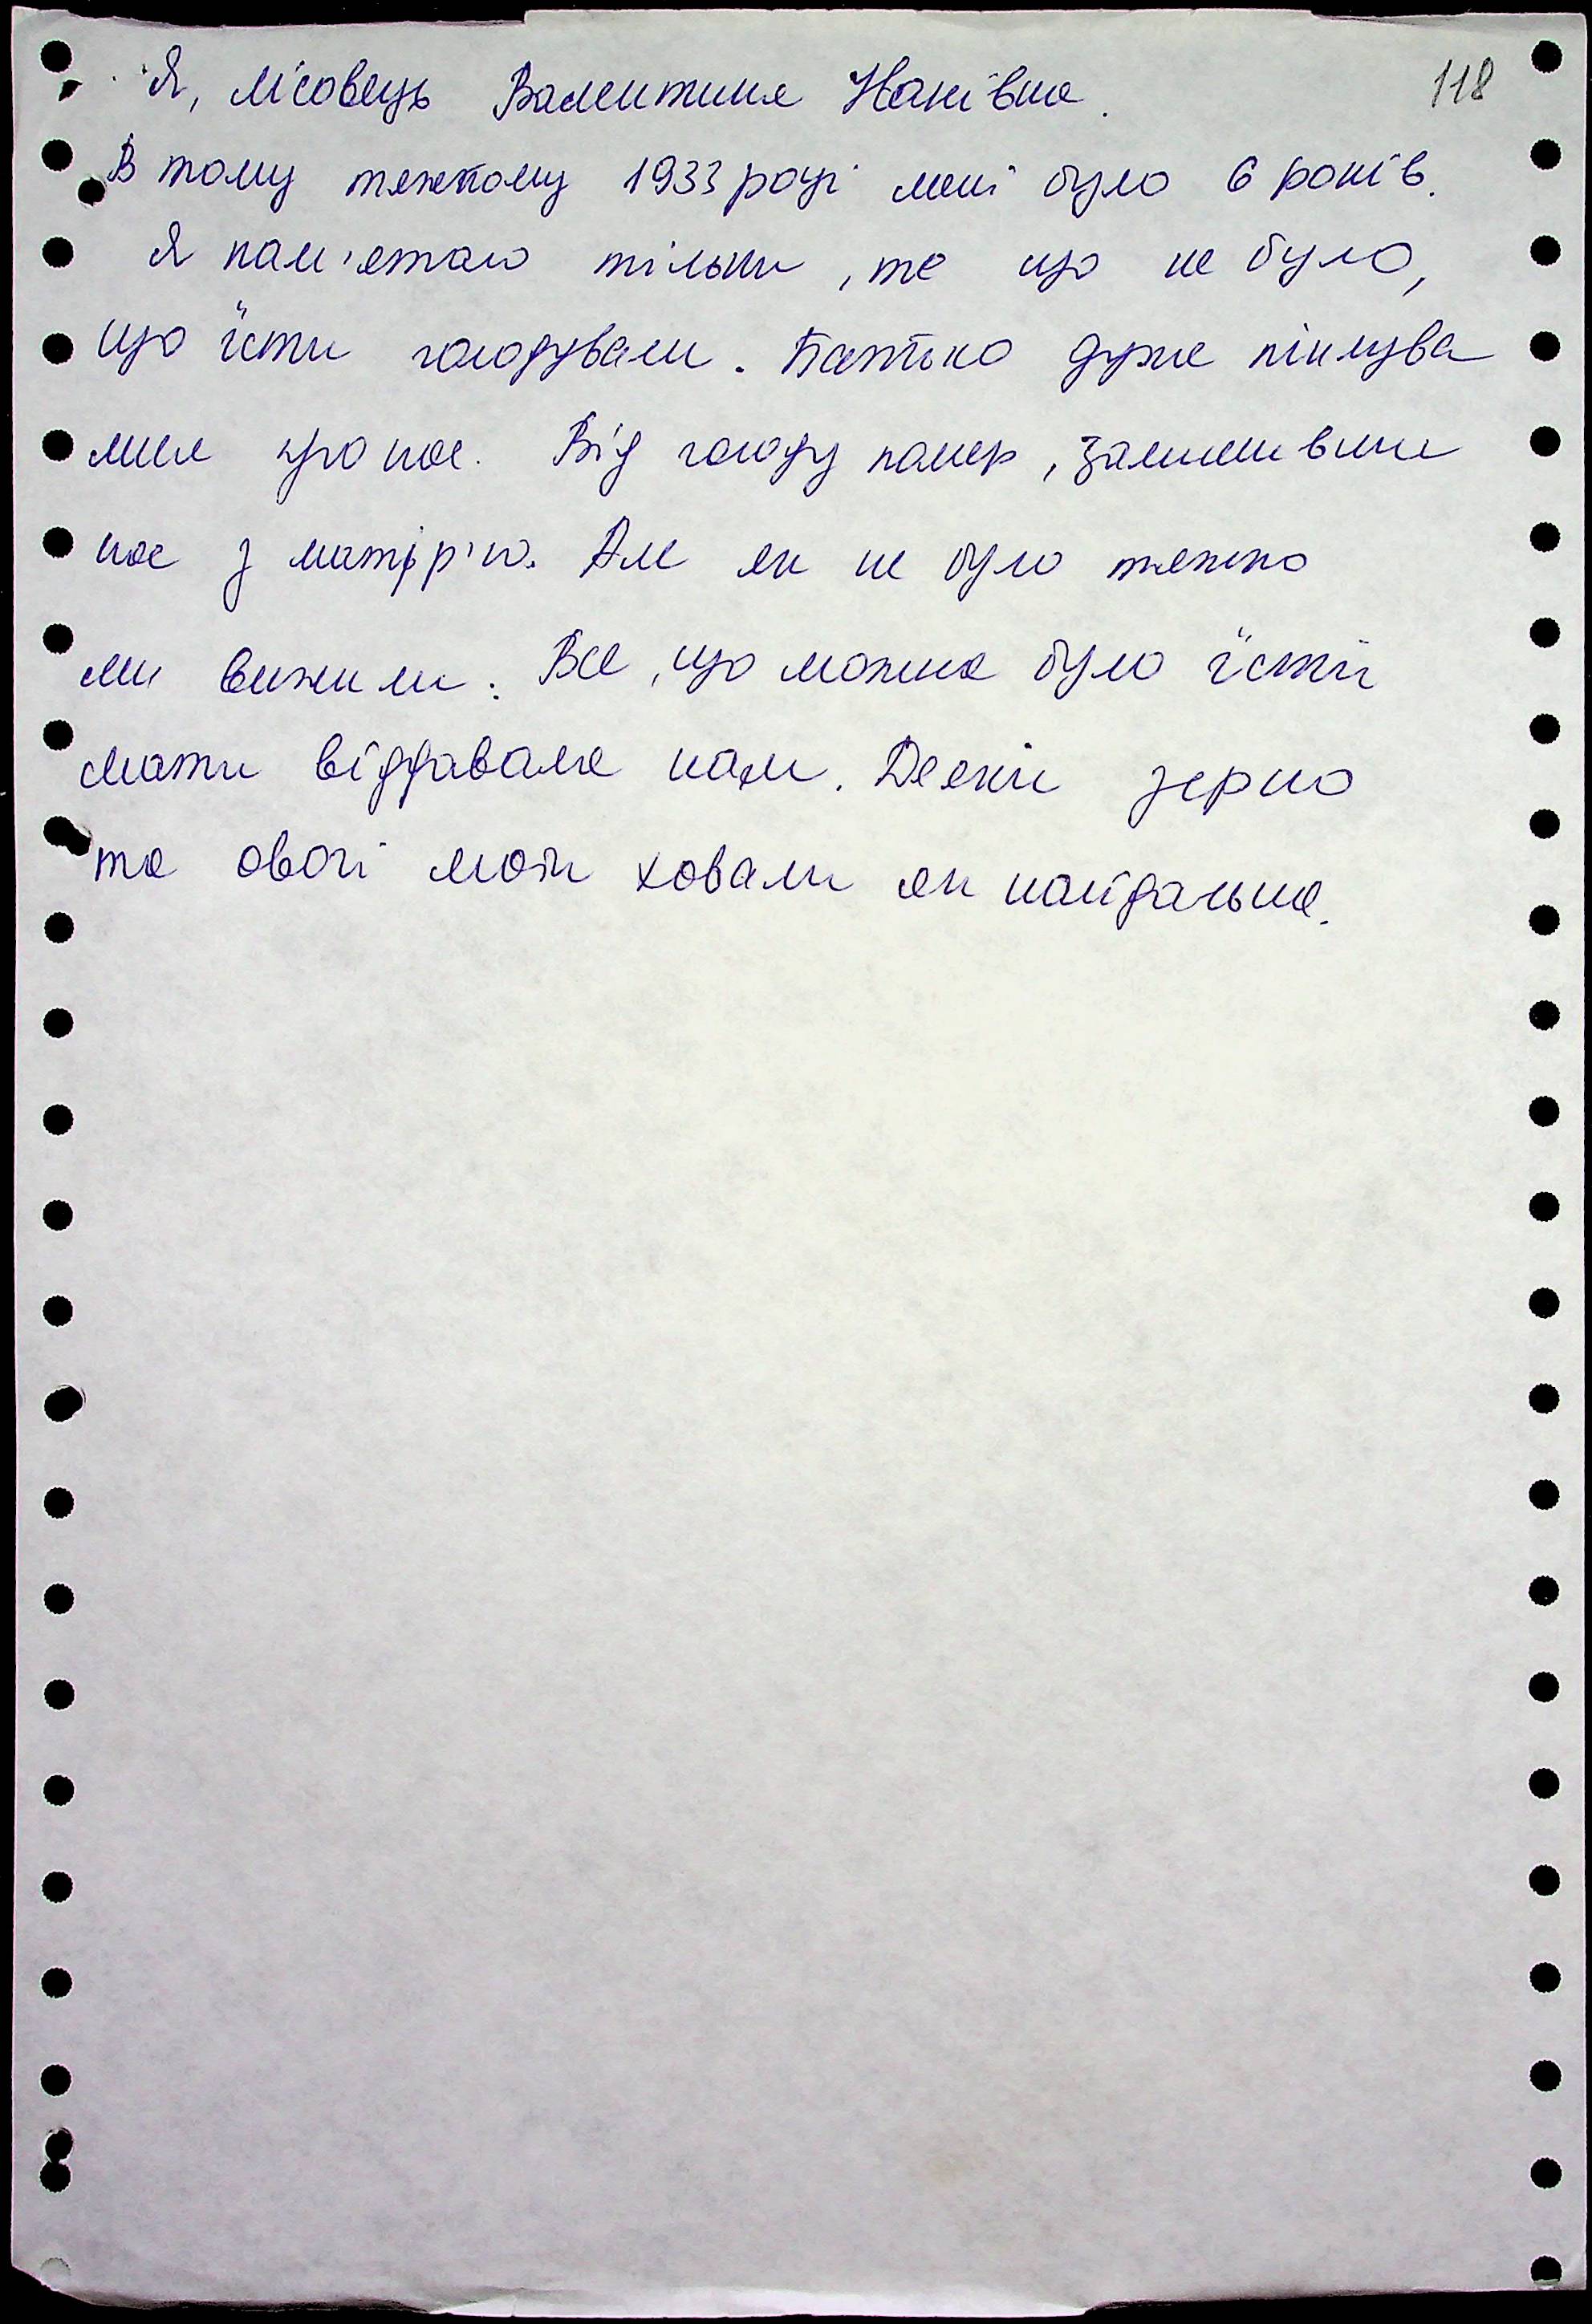 Я, Лісовець Валентина Іванівна. 118
В тому тяжкому 1933 році мені було 6 років.
Я пам'ятаю тільки, те що не було,
що їсти голодували. Батько дуже піклува
лися про нас. Від голоду помер, залишивши
нас з матір'ю. Але як не було тяжко
ми вижили. Все, що можна було їсти
мати віддавала нам. Деяки зерно
та овочі мати ховали як найдальше.